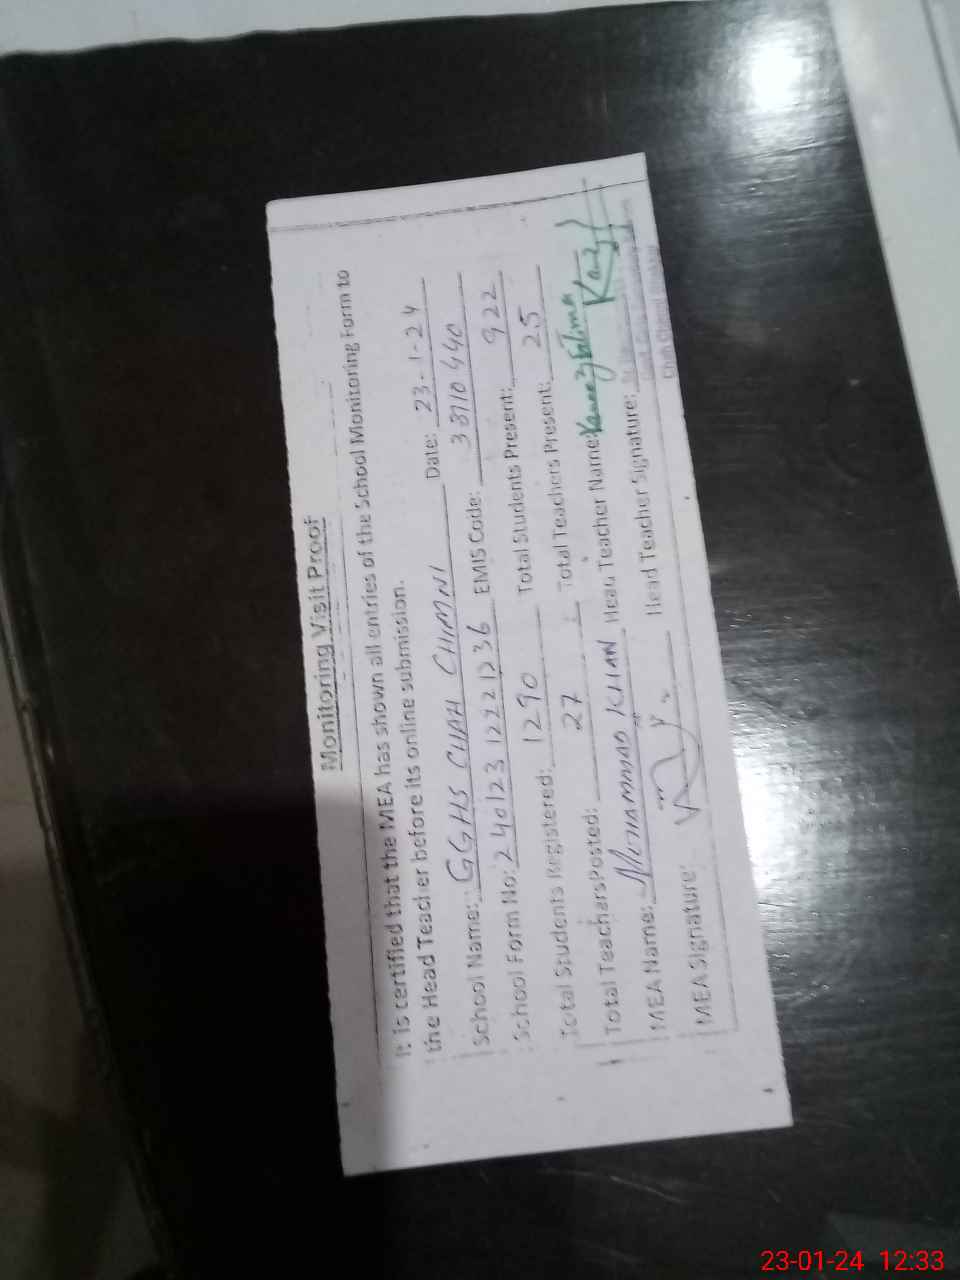 Monitoring Visit Proof
It is certified that the MEA has shown all entries of the School Monitoring Form to
the Head Teacher before its online submission.
School Name: GGHS CHAH CHIMNI Date: 23-1-24
School Form No: 240123 1222 1236 EMIS Code: 33110440
Total Students Registered: 1290 Total Students Present: 922
Total Teachers Posted: 27 Total Teachers Present: 25
MEA Name: MOHAMMAD KHAN Head Teacher Name: Kaneez Fatima
MEA Signature: Head Teacher Signature: Kaneez
23-01-24 12:33